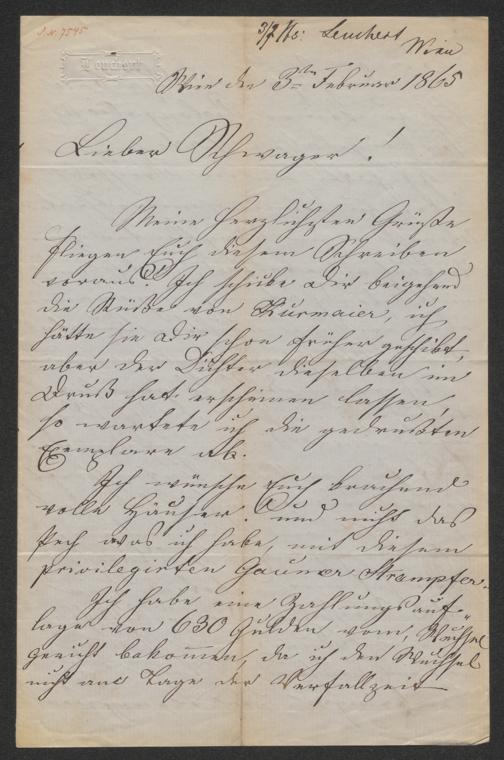 I.N. 7545
Wien
Wien den 3ten Februar 1865
Lieber Schwager!
Meine herzlichsten Grüße
fliegen Euch diesem Schreiben
voraus! Ich schicke Dir beigehend
die Stücke von Kurmaier, ich
hätte sie Dir schon früher geschikt,
aber der Dichter dieselben im
Druk hat erscheinen lassen,
so wartete ich die gedrukten
Exemplare ab.
Ich wünsche Euch brachend
volle Häuser. und nicht das
Pech was ich habe, mit diesem
privilegirten Gauner Strampfer.
Ich habe eine Zahlungsauf-
lage von 630 Gulden vom Wechsel
gericht bekommen, da ich den Wechsel
nicht am Tage der Verfallzeit